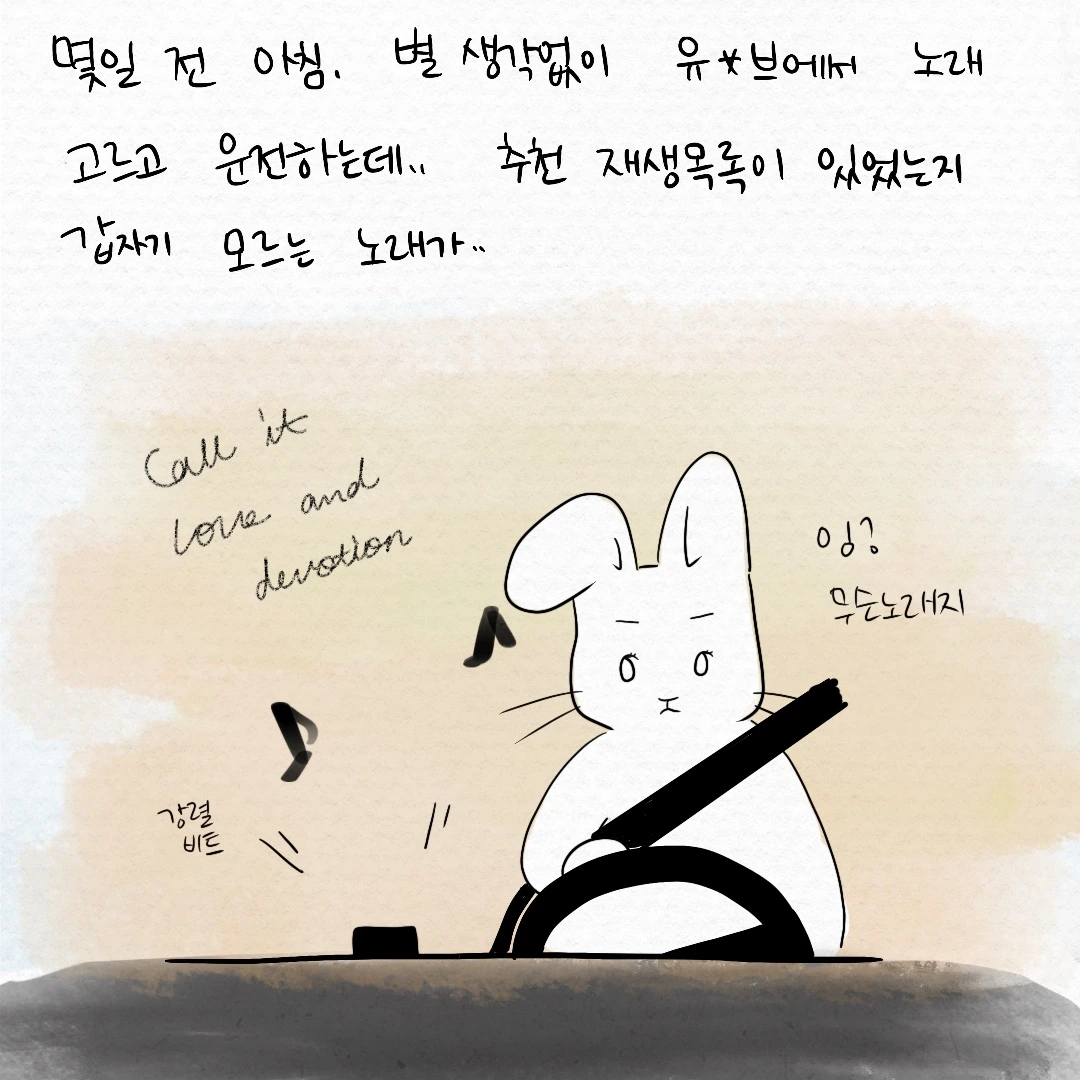 몇일 전 아침. 별 생각없이 유*브에서 노래
고르고 운전하는데.. 추천 재생목록이 있었는지
갑자기 모르는 노래가..
Call it
love and
devotion
잉?
무슨노래지
강렬
비트